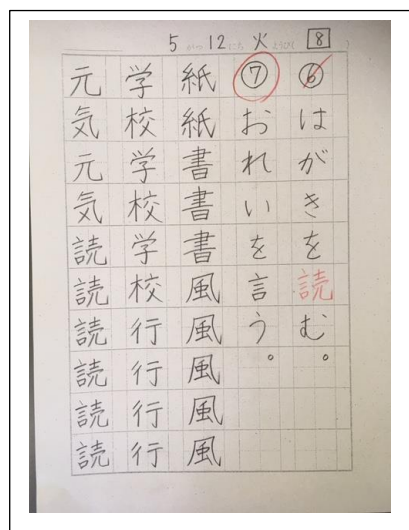 5がつ12にち火ようび 8
⑥はがきを読む。
⑦おれいを言う。
紙紙書書書風風風風風
学校学校学校行行行行
元気元気読読読読読読